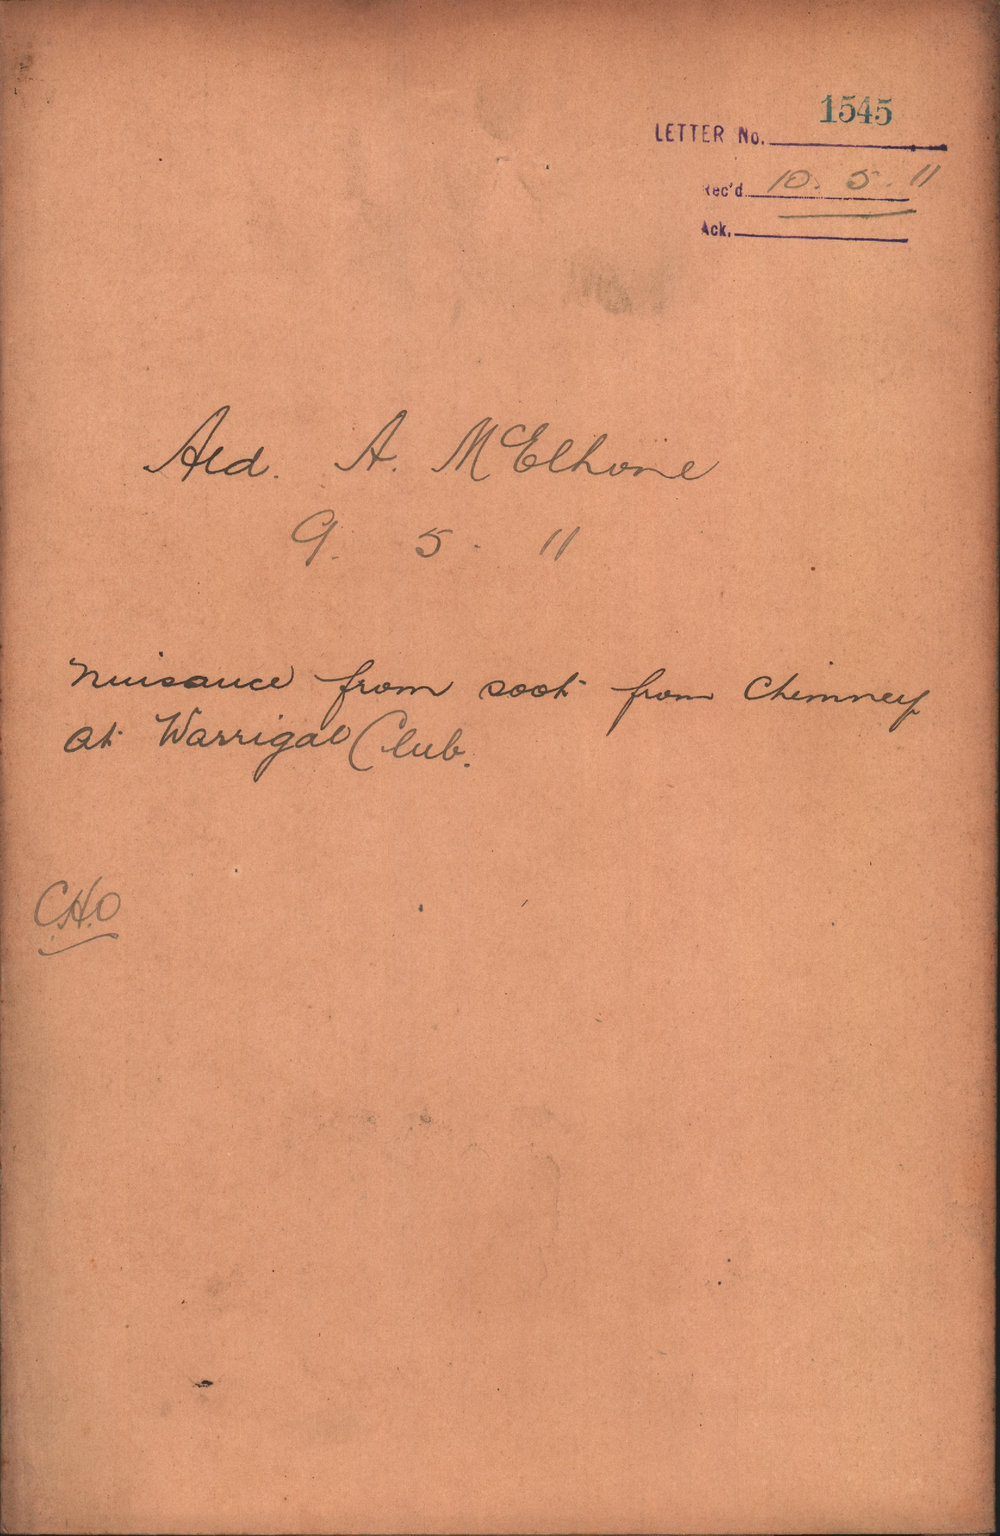 LETTER No. 1545
Rec'd 10. 5. 11
Ack.
Ald. A. McElhone
9. 5. 11
Nuisance from soot from Chimney
at Warrigal Club.
C.H.O